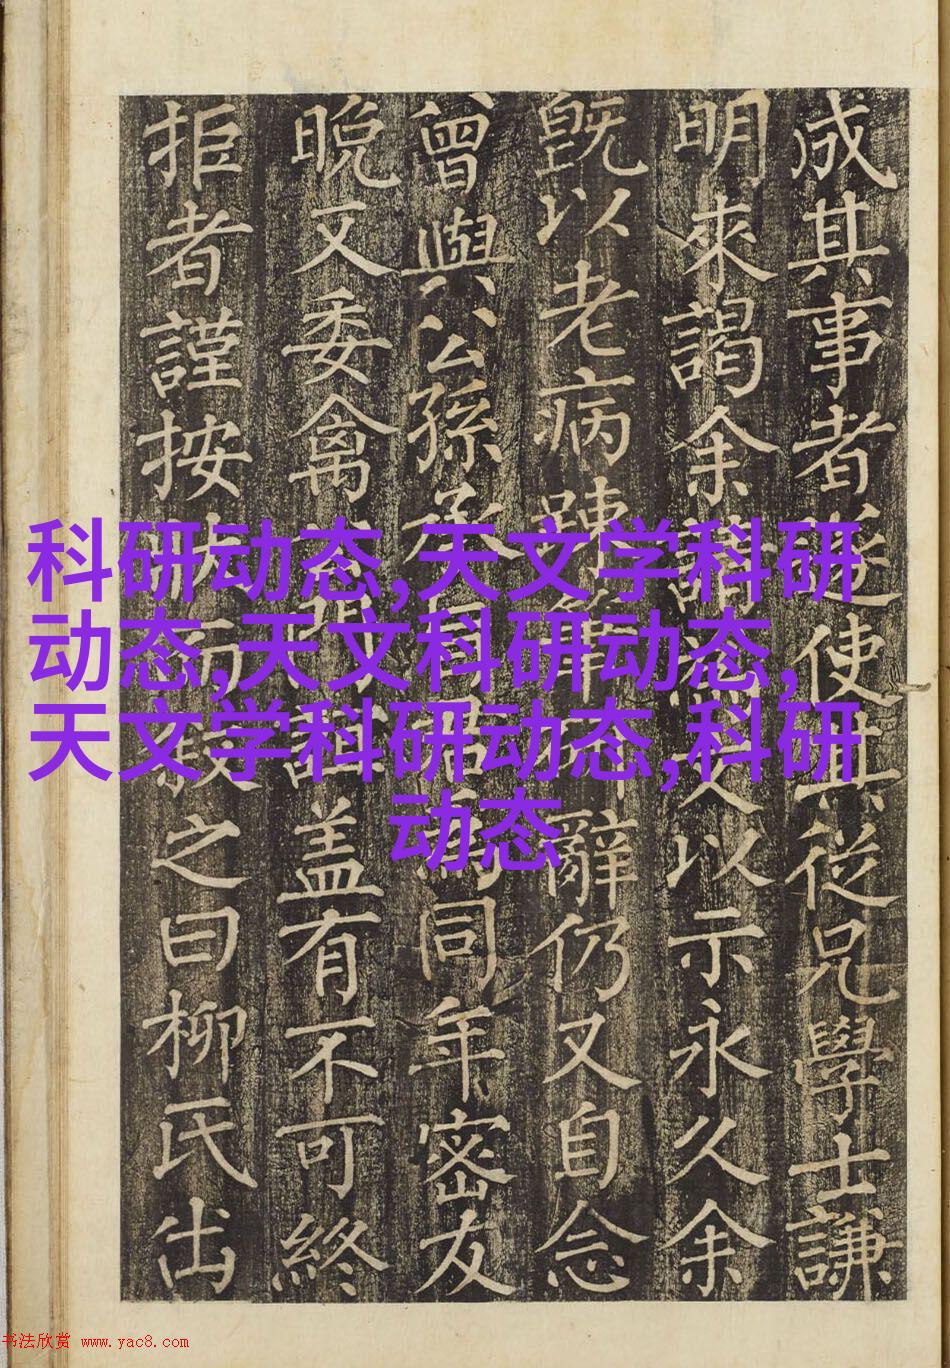 成其事者遂使其從兄學士謙
明來謁余文以示永久余
既以老病踈辭仍又自念
曾與公孫同年密友
晚又委禽盖有不可終
拒者謹按而叙之曰柳氏出
科研动态,天文学科研
动态,天文科研动态,
天文学科研动态,科研
动态
书法欣赏 www.yac8.com